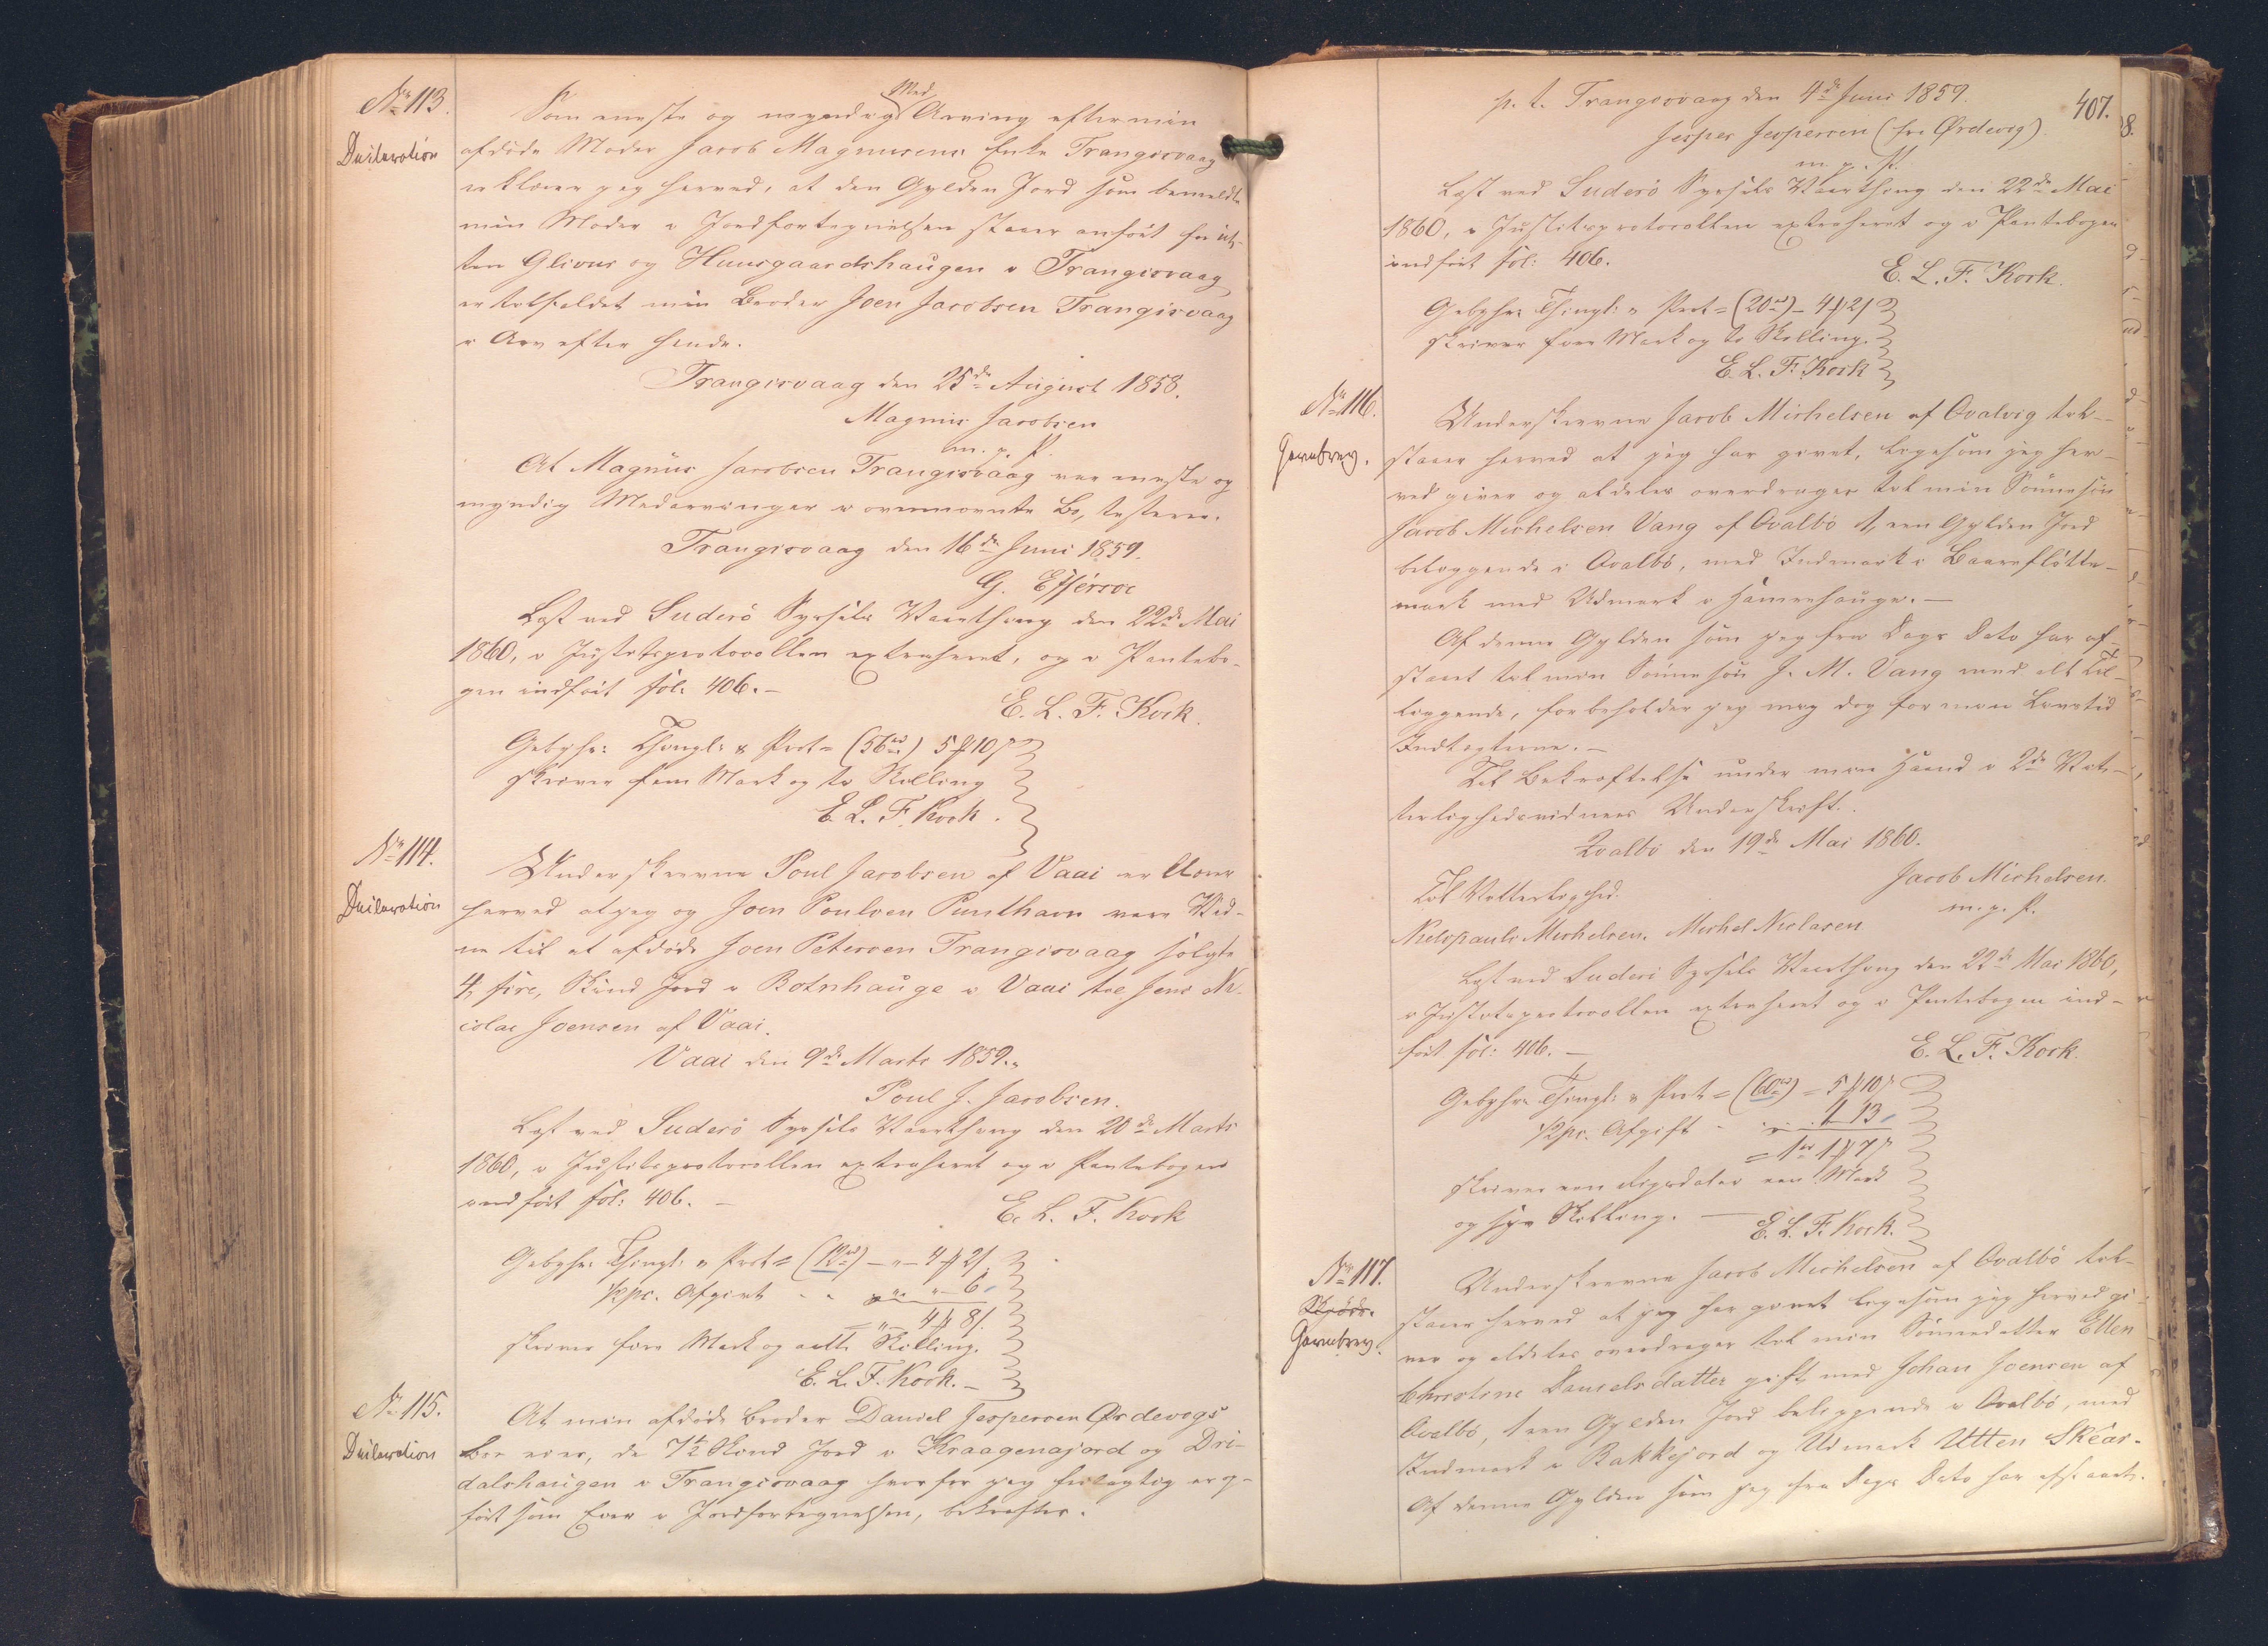 No 113.
Declaration
Som eneste og myndige Med Arving efter min
afdöde Moder Jacob Magnusens Enke Trangisvaag
erklærer jeg herved, at den Gylden Jord som bemeldte
min Moder i Jordfortegnelsen staaer anfört for
Glivur og Huusgaardshaugen i Trangisvaag
er tilfaldet min Broder Joen Jacobsen Trangisvaag
i Arv efter hende.
Trangisvaag den 25de August 1858.
Magnus Jacobsen
m. p. P.
At Magnus Jacobsen Trangisvaag var eneste og
myndig Medarvinger i ovennævnte Bo, testerer.
Trangisvaag den 16de Juni 1859.
G. Effersöe
Læst ved Suderö Syssels Vaarthing den 22de Mai
1860, i Justitsprotocollen extraheret, og i Pantebo-
gen indfört fol. 406.-
E. L. F. Kock.
Gebyhr: Thingl: & Prot = (56rd) 5 10
skriver fem Mark og ti Skilling
E. L. F. Kock.
No 114.
Declaration
Underskrevne Poul Jacobsen af Vaai erklærer
herved at jeg og Joen Poulsen Punthavn vare Vid-
ne til at afdöde Joen Petersen Trangisvaag solgte
4, fire, Skind Jord i Botnhauge i Vaai til Jens Ni-
colai Joensen af Vaai.
Vaai den 9de Marts 1859.
Poul J. Jacobsen.
Læst ved Suderö Syssels Vaarthing den 20de Marts
1860, i Justitsprotocollen extraheret og i Pantebogen
indfört fol: 406. -
E. L. F. Kock
Gebyhr: Thingl: & Prot = (12rd) - " - 4 2
1/2 pc. Afgivt " " - 6
= " - 4 8
skriver fire Mark og otte Skilling.
E. L. F. Kock. -
No 115.
Declaration
At min afdöde Broder Daniel Jespersen Ördevigs
Bo eier, de 7 1/2 Skind Jord i Kraagenajord og Dri-
dalshaugen i Trangisvaag hvorfor jeg feilagtig er op-
fört som Eier i Jordfortegnelsen, bekræftes.
407.
p. t. Trangisvaag den 4de Juni 1859.
Jesper Jespersen (fra Ørdevig).
m. p. P.
Læst ved Suderö Syssels Vaarthing den 22de Mai
1860, i Justitsprotocollen extraheret og i Pantebogen
indfört fol: 406.
E. L. F. Kock.
Gebyhr: Thingl: & Prot = (20rd) - 4 2
skriver fire Mark og to Skilling.
E. L. F. Kock
No 116.
Gavebrev.
Underskrevne Jacob Michelsen af Qvalvig til-
staaer herved at jeg har givet, ligesom jeg her-
ved giver og aldeles overdrager til min Sönnesön
Jacob Michelsen Vang af Qvalbö 1, een Gylden Jord
beliggende i Qvalbö, med Indmark i Baareflötte-
mark med Udmark i Hamrehauge. -
Af denne Gylden som jeg fra Dags Dato har af-
staaet til min Sönnesön J. M. Vang med alt Til-
liggende, forbeholder jeg mig dog for min Levetid
Indtægterne. -
Til Bekræftelse under min Haand i 2de Vit-
terlighedsvidners Underskrift.
Qvalbö den 19de Mai 1860.
Jacob Michelsen.
m. p. P.
Til Vitterlighed.
Nielspauli Michelsen. Michel Niclasen
Læst ved Suderö Syssels Vaarthing den 22de Mai 1860,
i Justitsprotocollen extraheret og i Pantebogen ind-
fört fol: 406. -
E. L. F. Kock.
Gebyhr: Thingl: & Prot = (60rd) = 5 10
1/2 pc. Afgift 1 13
= 1rd 1 7
skriver een Rigsdaler een Mark
og syv Skilling. -
E. L. F. Kock.
No 117.
Skjöde.
Gavebrev.
Underskrevne Jacob Michelsen af Qvalbö til-
staaer herved at jeg har givet ligesom jeg herved gi-
ver og aldeles overdrager til min Sönnedatter Ellen
Christine Danielsdatter gift med Johan Joensen af
Qvalbö, 1 een Gylden Jord beliggende i Qvalbö, med
Indmark i Bakkejord og Udmark Utten Skear.
Af denne Gylden som jeg fra Dags Dato har afstaaet